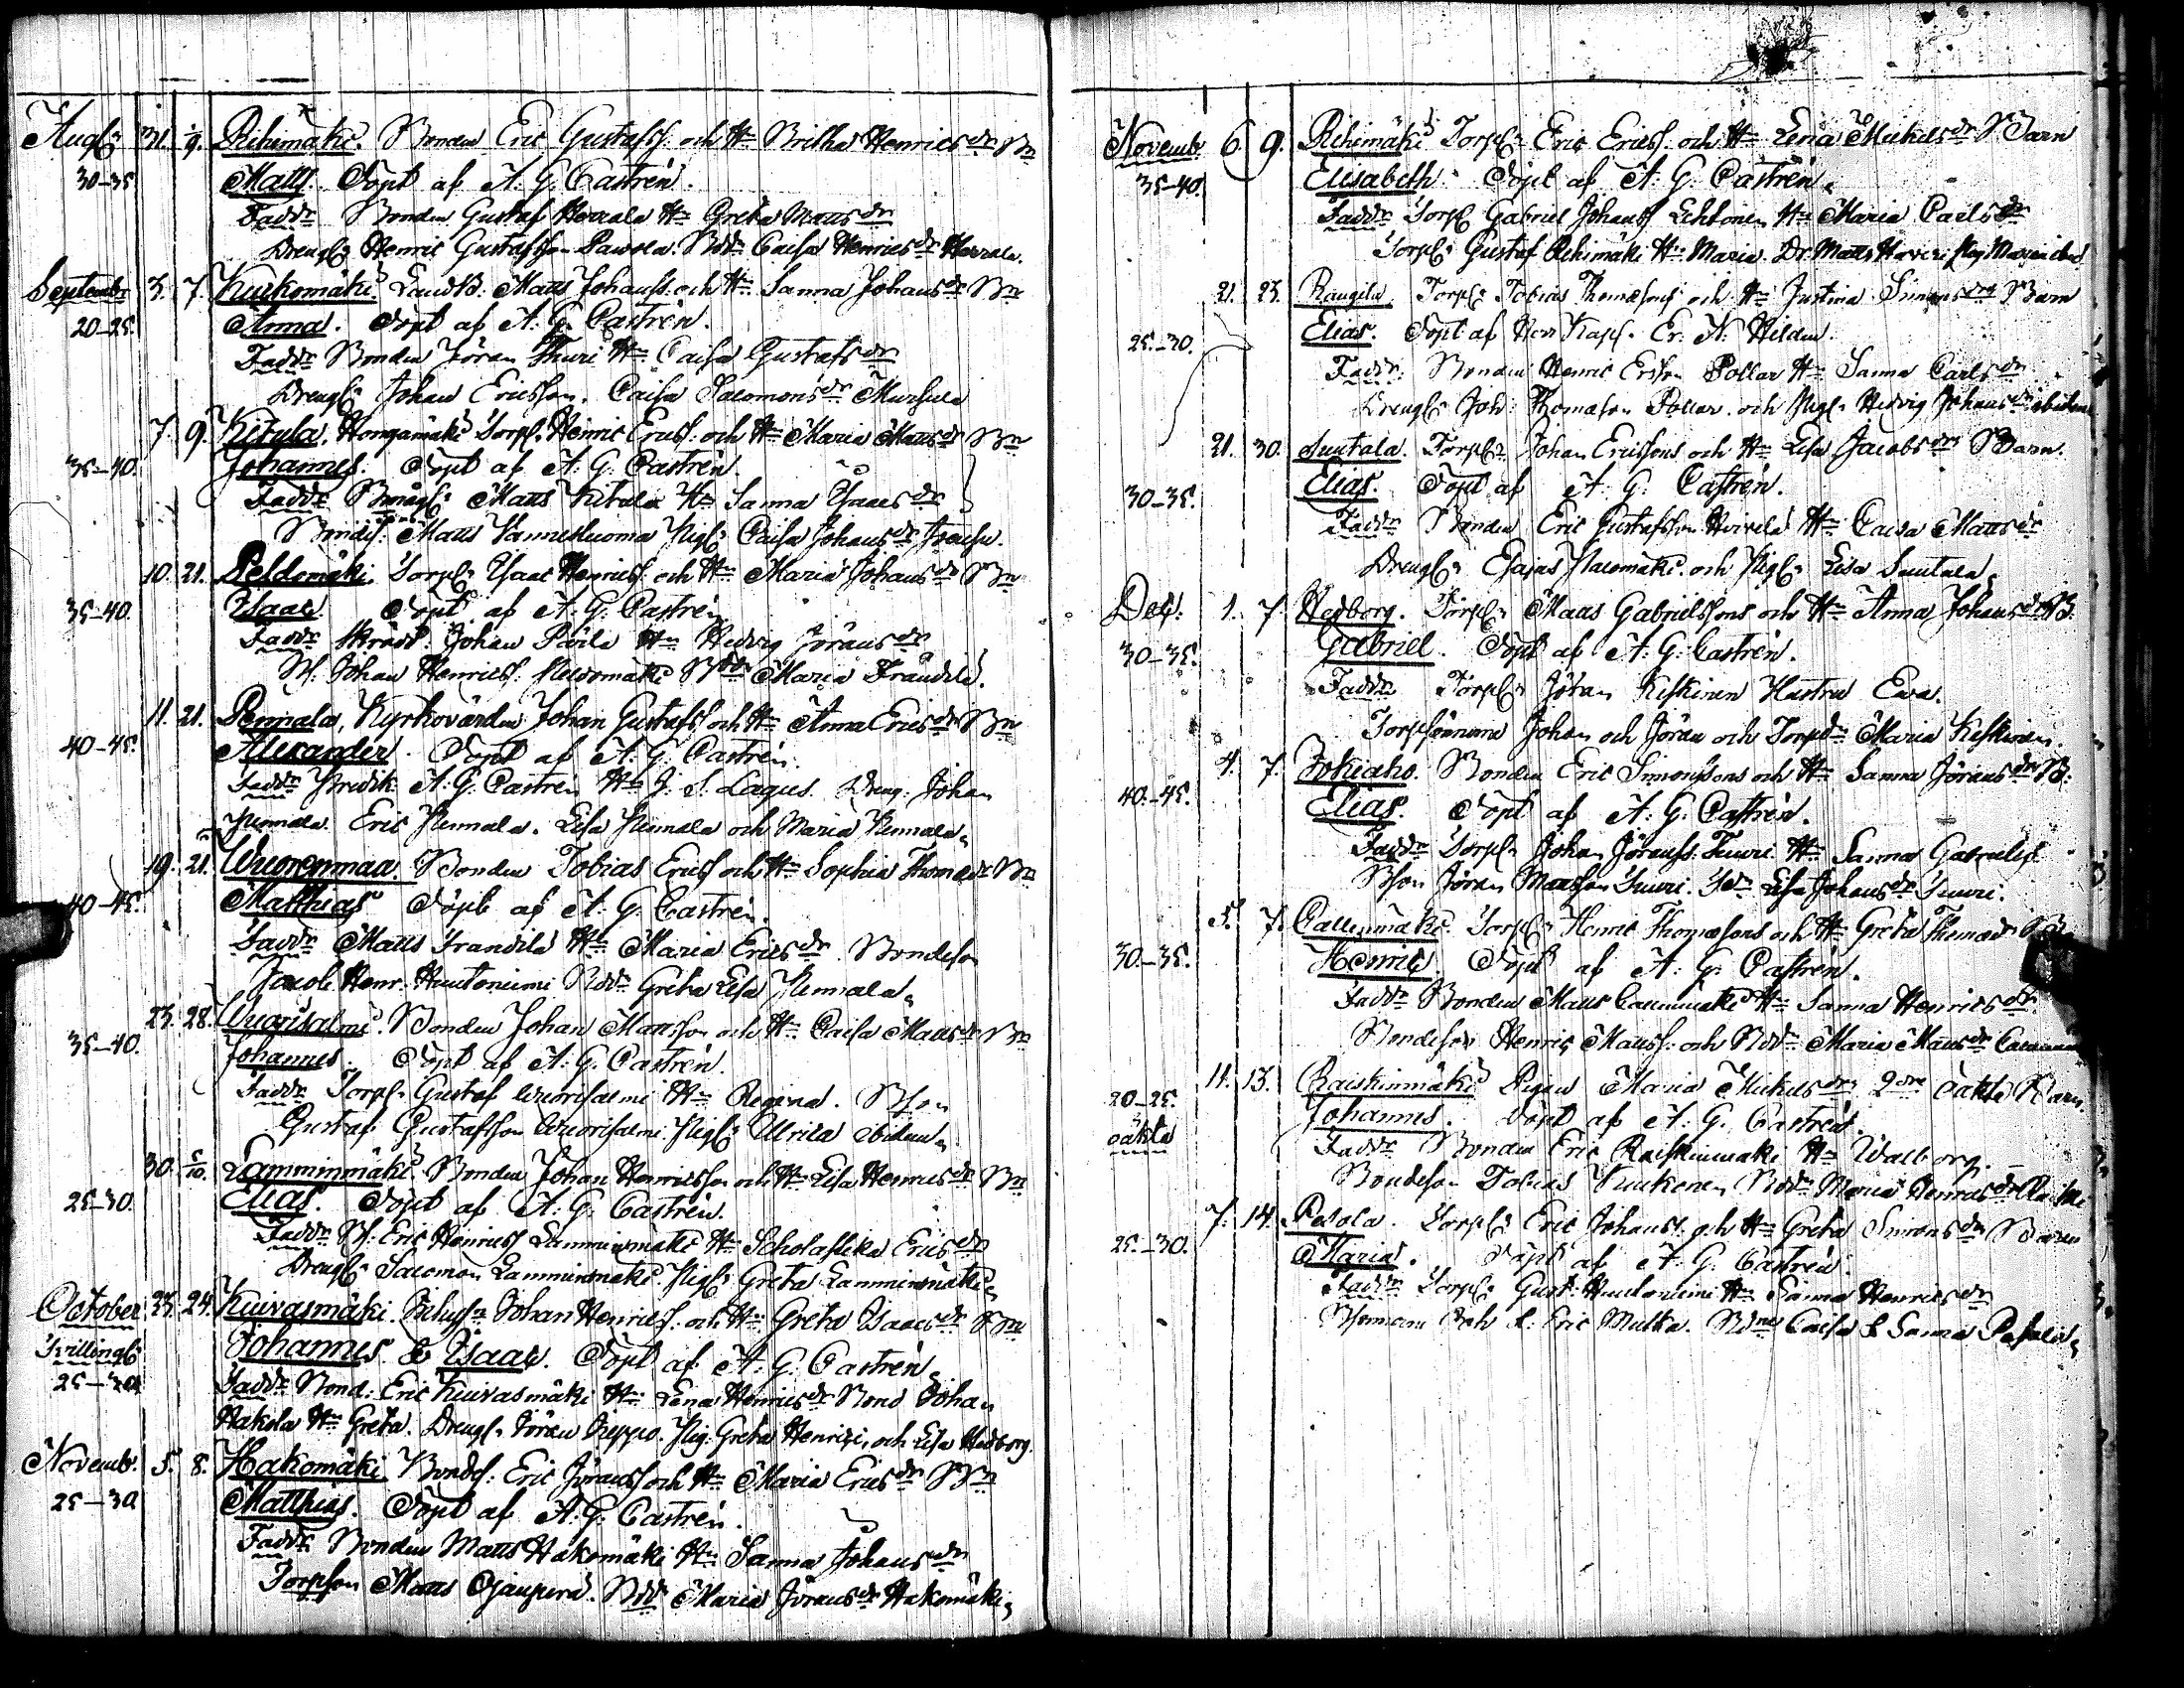 31. 9. Rihimäki. Bonden Eric Gustafss. och Hn Britha Henricsdr Bn
30-35 Matts. Döpt af A. G. Castrén.
Faddr Bonden Gustaf Hn Greta Mattsdr
Drengn Henric Gustafsson Pawola. Bdr Caisa Henricsdr
September 3. 7. Kurkomäki. Matts Johanss. och Hn Sanna Johansdr Bn
20-25. Anna. Döpt af A. G. Castrén.
Faddr Bonden Jöran Thuri Hn Caisa Gustafsdr
Drengn Johan Ericsson. Caisa Salomonsdr Mursula
7. 9. Kitula. Hongamäki Torpn Henric Ericss. och Hn Maria Mattsdr Bn
35-40. Johannes. Döpt af A. G. Castrén.
Faddr Matts Kitula Hn Sanna Isaacsdr
Matts Pign Caisa Johansdr
10. 21. Peldomäki. Torpn Isaac Henricss. och Hn Maria Johansdr Bn
35-40. Isaac. Döpt af A. G. Castrén
Faddr Johan Hn Hedvig Jöransdr
Johan Henricss. Peldomäki Maria Frandila.
11. 21. Pennala, Kyrkovärden Johan Gustafss. och Hn Anna Ericsdr Bn
40-45. Alexander. Döpt af A. G. Castrén.
Faddr Predik. A. G. Castrén Hn J. S. Lagus. Dreng. Johan
Pennala. Eric Pennala. Lisa Pennala och Maria Pennala.
19. 21. Wuorenmaa. Bonden Tobias Ericss och Hn Sophia Thomædr Bn
40-45. Matthias Döpt af A. G. Castrén.
Faddr Matts Frandila Hn Maria Ericsdr. Bondeson
Jacob Henr. Huutoniemi Bdr Greta Lisa Pennala.
23. 28. Wuorisalmi. Bonden Johan Mattsson och Hn Caisa Mattsdr Bn
35-40. Johannes. Döpt af A. G. Castrén.
Faddr Torpn Gustaf Wuorisalmi Hn Regina. Bson
Gustaf Gustafsson Wuorisalmi. Pign Ulrica ibidem.
30. 5/10. Lamminmäki. Bonden Johan Henricsson och Hn Lisa Henricsdr Bn
25-30. Elias. Döpt af A. G. Castrén.
Faddr Bf. Eric Henricss Lamminmäki Hn Scholastika Ericsdr
Drengn Salomon Lamminmäki. Pign Greta Lamminmäki.
October 23. 24. Kuivasmäki. Johan Henricss. och Hn Greta Isaacsdr Bn
Tvillingr Johannes & Isaac. Döpt af A. G. Castrén.
25-30 Faddr Bond. Eric Kuivasmäki Hn Lena Henricsdr Bond Johan
Hakola Hn Greta. Drengn Jöran Seppo. Pig. Greta Henrici, och Lisa Hedborg.
Novemb. 5. 8. Hakomäki Bondes. Eric Jöranss och Hn Maria Ericsdr Bn
25-30 Matthias. Döpt af A. G. Castrén.
Faddr Bonden Matts Hakomäki Hn Sanna Johansdr
Torpson Matts Ojanperä. Bdr Maria Jöransdr Hakomäki.
Novemb. 6. 9. Rihimäki Torpn Eric Ericss. och Hn Lena Mickelsdr Barn
35-40. Elisabeth. Döpt af A. G. Castrén.
Faddr Torpn Gabriel Johanss Lehtonen Hn Maria Carlsdr
Torpn Gustaf Rihimäki Hn Maria. Dr. Matts
21. 23. Torpn Tobias Thomæsons och Hn Justina Simonsdrs Barn
25-30. Elias. Döpt af Herr Kapl. Er. N. Hilden.
Faddr. Bonden Henric Ersson Pollar Hn Sanna Carlsdr
Drengn Joh. Thomæson Pollar. och Pign Hedvig Johansdr ibidem
21. 30. Suutala. Torpn Johan Ericssons och Hn Lisa Jacobsdrs Barn.
30-35. Elias. Döpt af A. G. Castrén.
Faddr Bonden Eric Gustafsson Hn Caisa Mattsdr
Drengn Esajas och Pign Lisa Suutala.
Decr. 1. 7 Hedborg. Torpn Matts Gabrielssons och Hn Anna Johansdrs B.
30-35. Gabriel. Döpt af A. G. Castrén.
Faddr Torpn Jöran Keskinen Hustru Ewa.
Torpsönerna Johan och Jöran och Torpdr Maria Keskinen.
4. 7. Jokiaho. Bonden Eric Simonssons och Hn Sanna Jöransdrs B.
40-45. Elias. Döpt af A. G. Castrén.
Faddr Torpn Johan Jöranss. Tuuri Hn Sanna Gabrielsd
Bson Jöran Mattsson Tuuri. Lisa Johansdr Tuuri.
5. 7. Torpn Henric Thomæsons och Hn Greta Thomædr
30-35. Henric. Döpt af A. G. Castrén.
Faddr Bonden Matts Hn Sanna Henricsdr.
Bondeson Henric Mattss. och Bdr Maria Mattsdr
11. 13. Raiskinmäki Pigan Maria Mickelsdrs 2dra oäkta Barn
20-25. oäkta Johannes. Döpt af A. G. Castrén.
Faddr Bonden Eric Raiskinmäki Hn Walborg.
Bondeson Tobias Kuukanen Bdr Maria Henricsdr
7. 14. Pesola. Torpn Eric Johanss. och Hn Greta Simonsdr Barn
25-30. Maria. Döpt af A. G. Castrén.
Faddr Torpn Gust. Huutoniemi Hn Sanna Henricsdr
Joh. & Eric Mutka. Caisa & Sanna